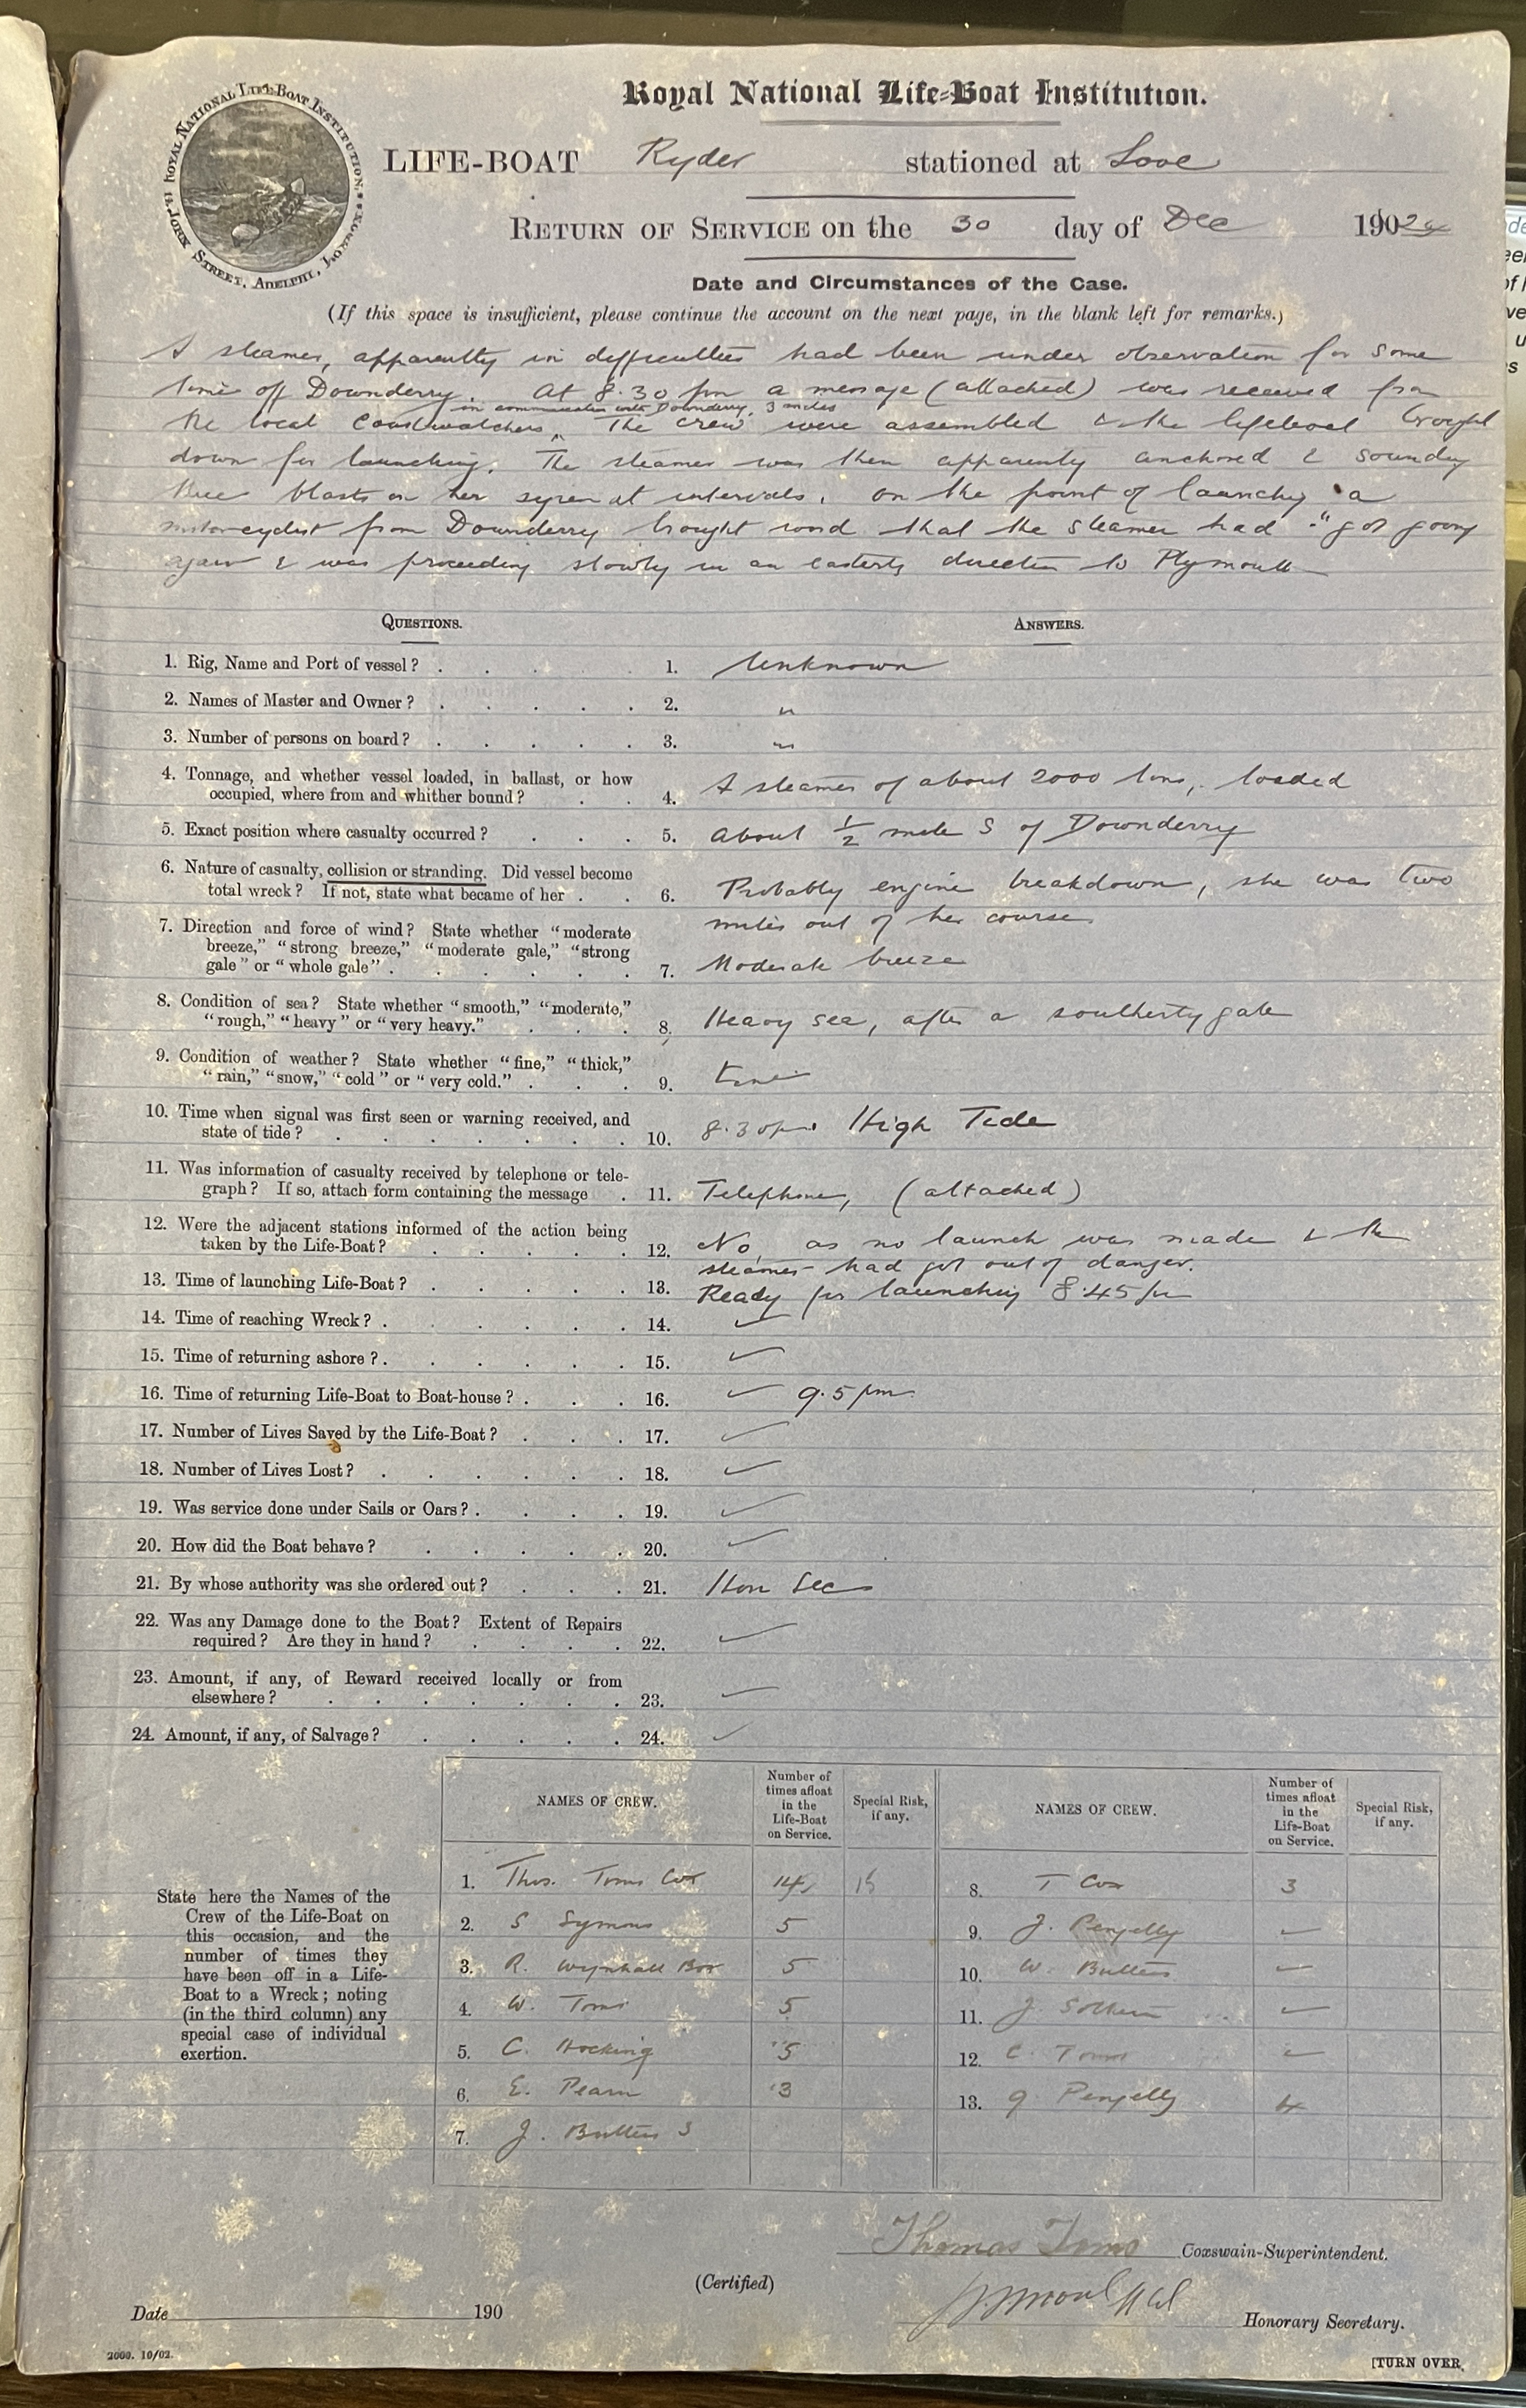 ROYAL NATIONAL LIFE-BOAT INSTITUTION. JOHN STREET, ADELPHI, LONDON.
Royal National Life-Boat Institution.
LIFE-BOAT Ryder stationed at Looe
RETURN OF SERVICE on the 30 day of Dec 1902
Date and Circumstances of the Case.
(If this space is insufficient, please continue the account on the next page, in the blank left for remarks.)
A steamer, apparently in difficulties had been under observation for some
time off Downderry. At 8.30 pm a message (attached) was received from
in communication with Downderry, 3 miles
the local Coastwatchers. The crew were assembled & the lifeboat brought
down for launching. The steamer was then apparently anchored & sounding
three blasts on her syren at intervals. On the point of launching a
motorcyclist from Downderry brought word that the steamer had "got going
again & was proceeding slowly in an easterly direction to Plymouth
QUESTIONS. ANSWERS.
1. Rig, Name and Port of vessel? 1. Unknown
2. Names of Master and Owner? 2. "
3. Number of persons on board? 3. "
4. Tonnage, and whether vessel loaded, in ballast, or how
occupied, where from and whither bound? 4. A steamer of about 2000 tons, loaded
5. Exact position where casualty occurred? 5. About 1/2 mile S of Downderry
6. Nature of casualty, collision or stranding. Did vessel become
total wreck? If not, state what became of her. 6. Probably engine breakdown, she was two
miles out of her course
7. Direction and force of wind? State whether "moderate
breeze," "strong breeze," "moderate gale," "strong
gale" or "whole gale". 7. Moderate breeze
8. Condition of sea? State whether "smooth," "moderate,"
"rough," "heavy" or "very heavy." 8. Heavy sea, after a southerly gale
9. Condition of weather? State whether "fine," "thick,"
"rain," "snow," "cold" or "very cold." 9. Fine
10. Time when signal was first seen or warning received, and
state of tide? 10. 8.30pm. High Tide
11. Was information of casualty received by telephone or tele-
graph? If so, attach form containing the message 11. Telephone, (attached)
12. Were the adjacent stations informed of the action being
taken by the Life-Boat? 12. No, as no launch was made & the
steamer had got out of danger.
13. Time of launching Life-Boat? 13. Ready for launching 8.45 pm
14. Time of reaching Wreck? 14. ✓
15. Time of returning ashore? 15. ✓
16. Time of returning Life-Boat to Boat-house? 16. ✓ 9.5 pm
17. Number of Lives Saved by the Life-Boat? 17. ✓
18. Number of Lives Lost? 18. ✓
19. Was service done under Sails or Oars? 19. ✓
20. How did the Boat behave? 20. ✓
21. By whose authority was she ordered out? 21. Hon Sec
22. Was any Damage done to the Boat? Extent of Repairs
required? Are they in hand? 22. ✓
23. Amount, if any, of Reward received locally or from
elsewhere? 23. ✓
24. Amount, if any, of Salvage? 24. ✓
NAMES OF CREW. Number of times afloat in the Life-Boat on Service. Special Risk, if any. NAMES OF CREW. Number of times afloat in the Life-Boat on Service. Special Risk, if any.
State here the Names of the
Crew of the Life-Boat on
this occasion, and the
number of times they
have been off in a Life-
Boat to a Wreck; noting
(in the third column) any
special case of individual
exertion.
1. Thos. Toms Cox 14 15
2. S Symons 5
3. R. Wynhall Bow 5
4. W. Toms 5
5. C. Hocking 5
6. E. Pearn 3
7. J. Butters 3
8. T Cox 3
9. J. Pengelly
10. W. Butters
11. J.
12. C. Toms
13. G Pengelly 4
Thomas Toms Coxswain-Superintendent.
(Certified)
Honorary Secretary.
Date 190
2000. 10/02.
[TURN OVER.